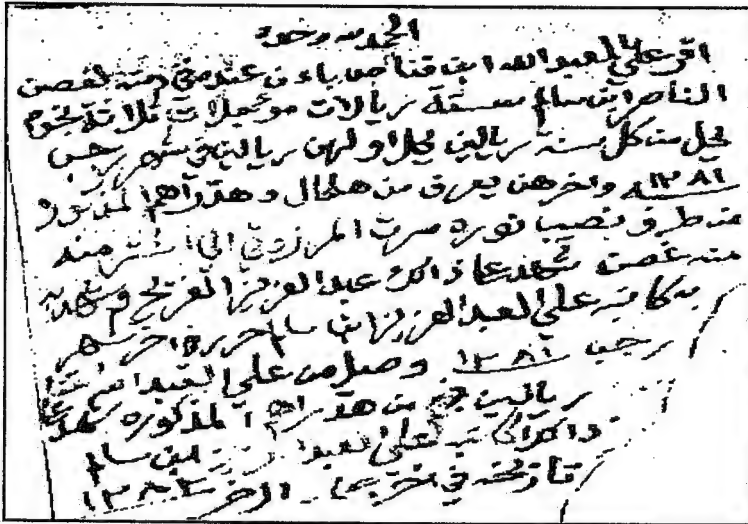 الحمد لله وحده
اقر علي العبد الله ابن قناص بان عنده في ذمته لغصن
الناصر ابن سالم ستة ريالات مؤجلات ثلاثة نجوم
يحل من كل سنة ريالين يحل اولهن ريالين في شهر رجب
١٢٨١ واخرهن يعرف من هالحال وهذراهم المذكور
من طرف نصيب نوره مرت المرزوقي الي اشتر منه
من غصن شهد على ذالك عبد العزيز الفريح وشهد به
به كاتبه علي العبد العزيز ابن سالم حرر في اخر شهر
رجب ١٢٨١ وصل من علي العبد الله
ريالين من هذراهم المذكوره شهد
ذالك كاتبه علي العبد العزيز ابن سالم
تاريخه في اخر الاخر ١٢٨٣